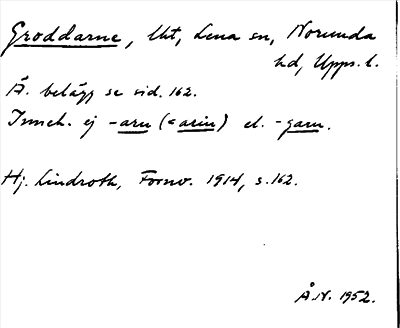 Groddarne, Uht, Lena sn, Norunda
hd, Upps. l.
Ä. belägg se sid. 162.
Inneh. ej -aru (< arin) el. -garn.
Hj. Lindroth, Fornv. 1914, s. 162.
Å.N. 1952.